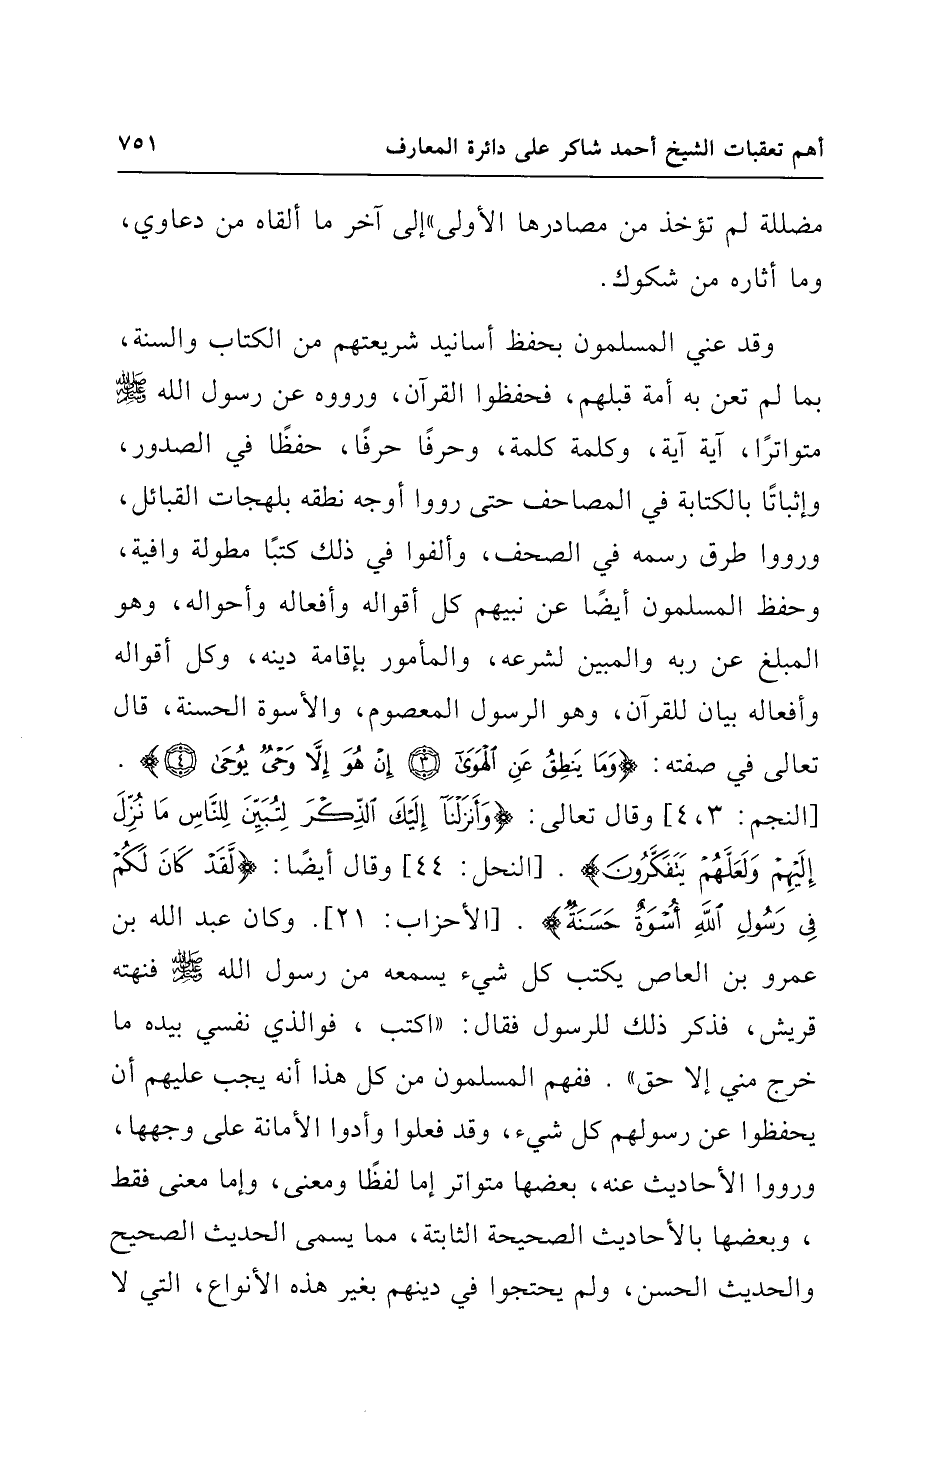 أهم تعقبات الشيخ أحمد شاكر على دائرة المعارف ٧٥١
مضللة لم تؤخذ من مصادرها الأولى»إلى آخر ما ألقاه من دعاوي،
وما أثاره من شكوك.
وقد عني المسلمون بحفظ أسانيد شريعتهم من الكتاب والسنة،
بما لم تعن به أمة قبلهم، فحفظوا القرآن، ورووه عن رسول الله ﷺ
متواترًا، آية آية، وكلمة كلمة، وحرفًا حرفًا، حفظًا في الصدور،
وإثباتًا بالكتابة في المصاحف حتى رووا أوجه نطقه بلهجات القبائل،
ورووا طرق رسمه في الصحف، وألفوا في ذلك كتبًا مطولة وافية،
وحفظ المسلمون أيضًا عن نبيهم كل أقواله وأفعاله وأحواله، وهو
المبلغ عن ربه والمبين لشرعه، والمأمور بإقامة دينه، وكل أقواله
وأفعاله بيان للقرآن، وهو الرسول المعصوم، والأسوة الحسنة، قال
تعالى في صفته: ﴿وَمَا يَنطِقُ عَنِ ٱلْهَوَىٰٓ ۝٣ إِنْ هُوَ إِلَّا وَحْىٌ يُوحَىٰ ۝٤﴾ .
[النجم: ٣، ٤] وقال تعالى: ﴿وَأَنزَلْنَآ إِلَيْكَ ٱلذِّكْرَ لِتُبَيِّنَ لِلنَّاسِ مَا نُزِّلَ
إِلَيْهِمْ وَلَعَلَّهُمْ يَتَفَكَّرُونَ﴾ . [النحل: ٤٤] وقال أيضًا: ﴿لَّقَدْ كَانَ لَكُمْ
فِى رَسُولِ ٱللَّهِ أُسْوَةٌ حَسَنَةٌ﴾ . [الأحزاب: ٢١]. وكان عبد الله بن
عمرو بن العاص يكتب كل شيء يسمعه من رسول الله ﷺ فنهته
قريش، فذكر ذلك للرسول فقال: «اكتب ، فوالذي نفسي بيده ما
خرج مني إلا حق» . ففهم المسلمون من كل هذا أنه يجب عليهم أن
يحفظوا عن رسولهم كل شيء، وقد فعلوا وأدوا الأمانة على وجهها،
ورووا الأحاديث عنه، بعضها متواتر إما لفظًا ومعنى، وإما معنى فقط
، وبعضها بالأحاديث الصحيحة الثابتة، مما يسمى الحديث الصحيح
والحديث الحسن، ولم يحتجوا في دينهم بغير هذه الأنواع، التي لا